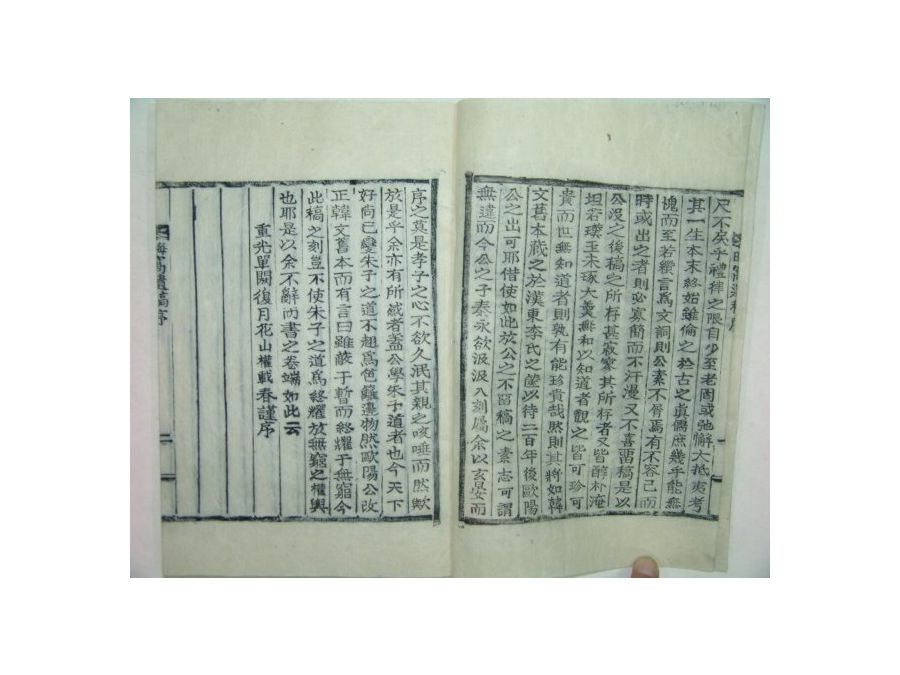 尺不戾乎禮律之限自少至老罔或弛懈大抵夷考
其一生本末終始雖倫之於古之眞儒庶幾乎能無
愧而至若纘言爲文詞則公素不屑焉有不容已而
時或出之者則必寡簡而不汗漫又不喜畱稿是以
公沒之後稿之所存甚寂寥其所存者又皆醇朴淹
坦若璞玉未琢大羹無和以知道者觀之皆可珍可
貴而世無知道者則孰有能珍貴哉然則其將如韓
文舊本藏之於漢東李氏之筐以待二百年後歐陽
公之出可耶借使如此放公之不畱稿之素志可謂
無違而今公之子泰永欲汲汲入刻屬余以玄晏而
序之莫是孝子之心不欲久泯其親之咳唾而然歟
於是乎余亦有所感者蓋公學朱子道者也今天下
好尚已變朱子之道不趐爲笆籬邊物然歐陽公改
正韓文舊本而有言曰雖蔽于暫而終耀于無窮今
此稿之刻豈不使朱子之道爲終耀於無窮之權輿
也耶是以余不辭而書之卷端如此云
重光單閼復月花山權載春謹序
遺稿序
二